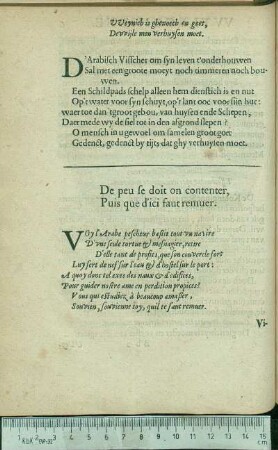 VVeynich is ghenoech en geet,
De vrijde men verhuysen moet.
D'Arabisch Visscher om syn leven t'onderhouwen
Sal met een groote moeyt noch timmeren noch bou-
wen.
Een Schildpads schelp alleen hem dienstich is en nut
Op't water voor syn schuyt, op't lant ooc voor sijn hut:
waer toe dan t'groot gebou, van huysen ende Schepen,
Daer mede wy de siel tot in den afgrond slepen?
O mensch in u gewoel om samelen groot goet
Gedenct, gedenct by tijts dat ghy verhuyten moet.
De peu se doit on contenter,
Puis que d'ici faut remuer.
VOy l'Arabe pescheur bastit tout un navire
D'une seule tortue & mesnagier, retire
D'elle tant de profits, que son couvercle sert
Luy sert de nef sur l'eau & d'hostel sur le port:
A quoy donc tel exces des naus & d'edifices,
Pour guider nostre ame en perdition propices?
Vous qui estudiez à beaucoup amasser,
Souvien, souvienne toy, qu'il te faut remuer.
Vi-
1 2 3 4 5 6 7 8 9 10 11 12 13 14 15
cm